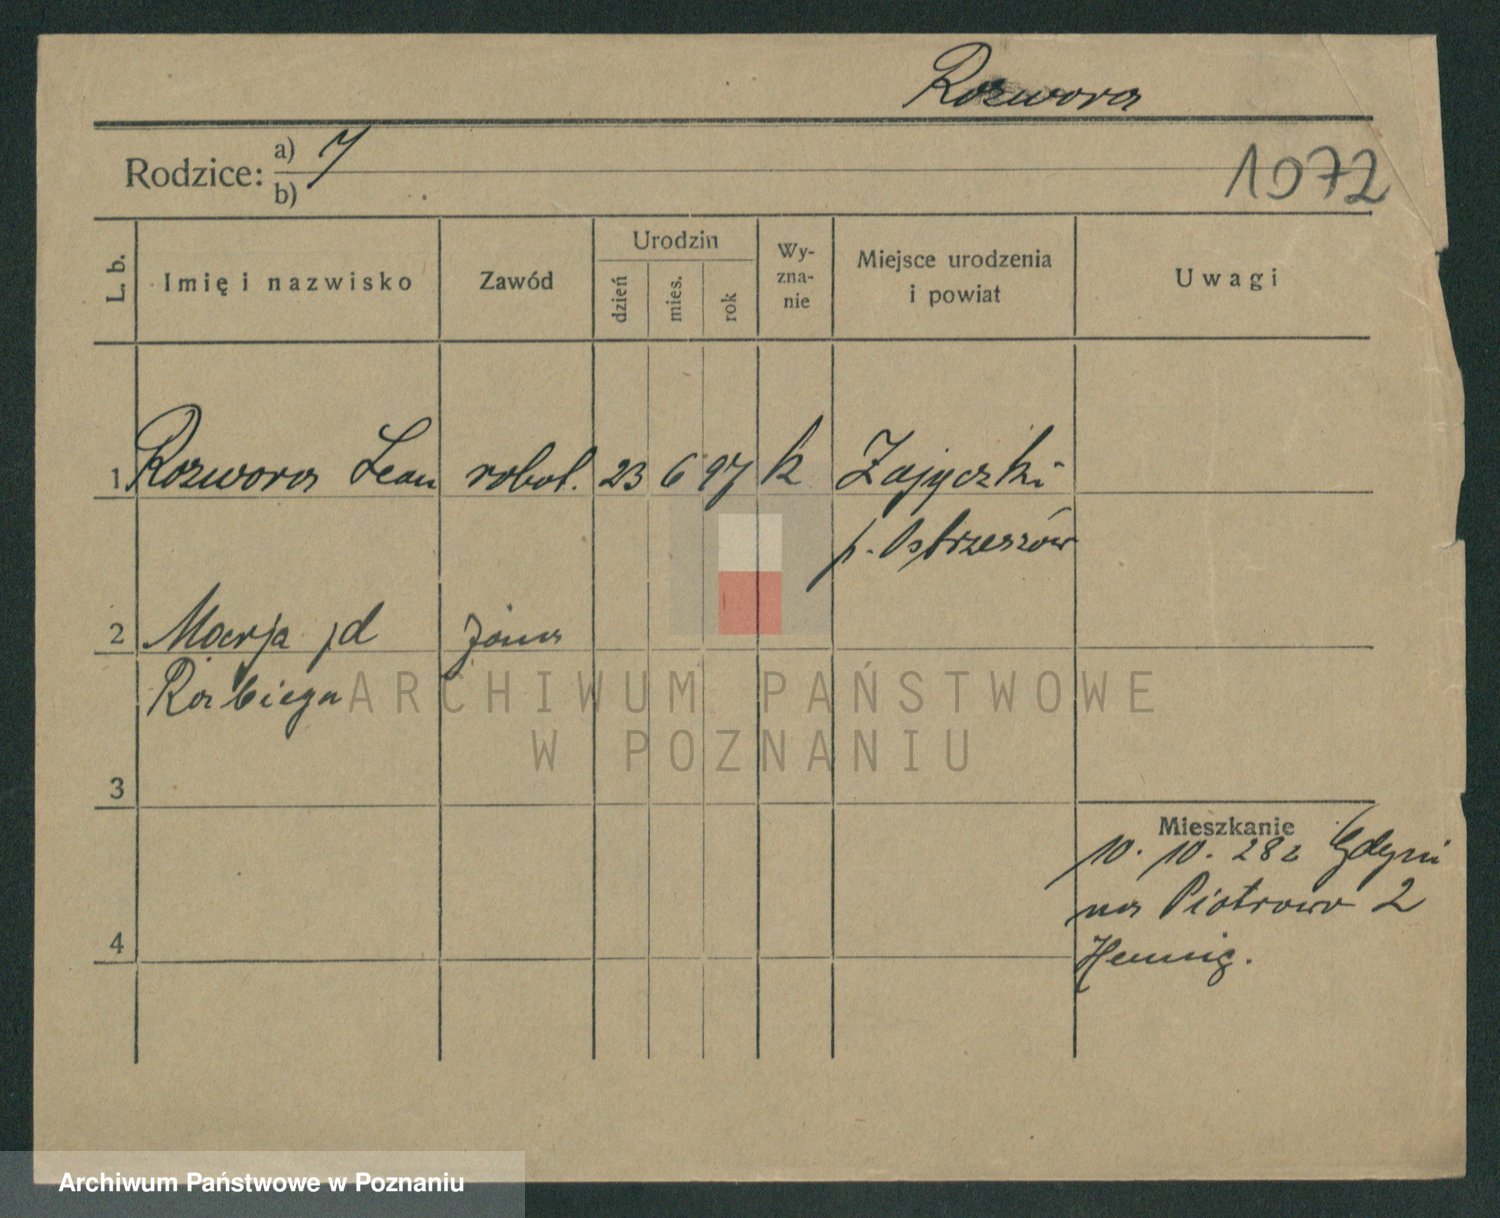 Rozwora
Rodzice: a)
b)
1972
L. b.
Imię i nazwisko
Zawód
Urodzin
dzień
mies.
rok
Wy-
zna-
nie
Miejsce urodzenia
i powiat
Uwagi
1 Rozwora Leon robot. 23 6 97 k Zajączki
p. Ostrzeszów
2 Marja żona
Rabiega
3
Mieszkanie
10. 10. 28 z Gdyni
na Piotrowo 2
Hennig.
4
ARCHIWUM PAŃSTWOWE
W POZNANIU
Archiwum Państwowe w Poznaniu